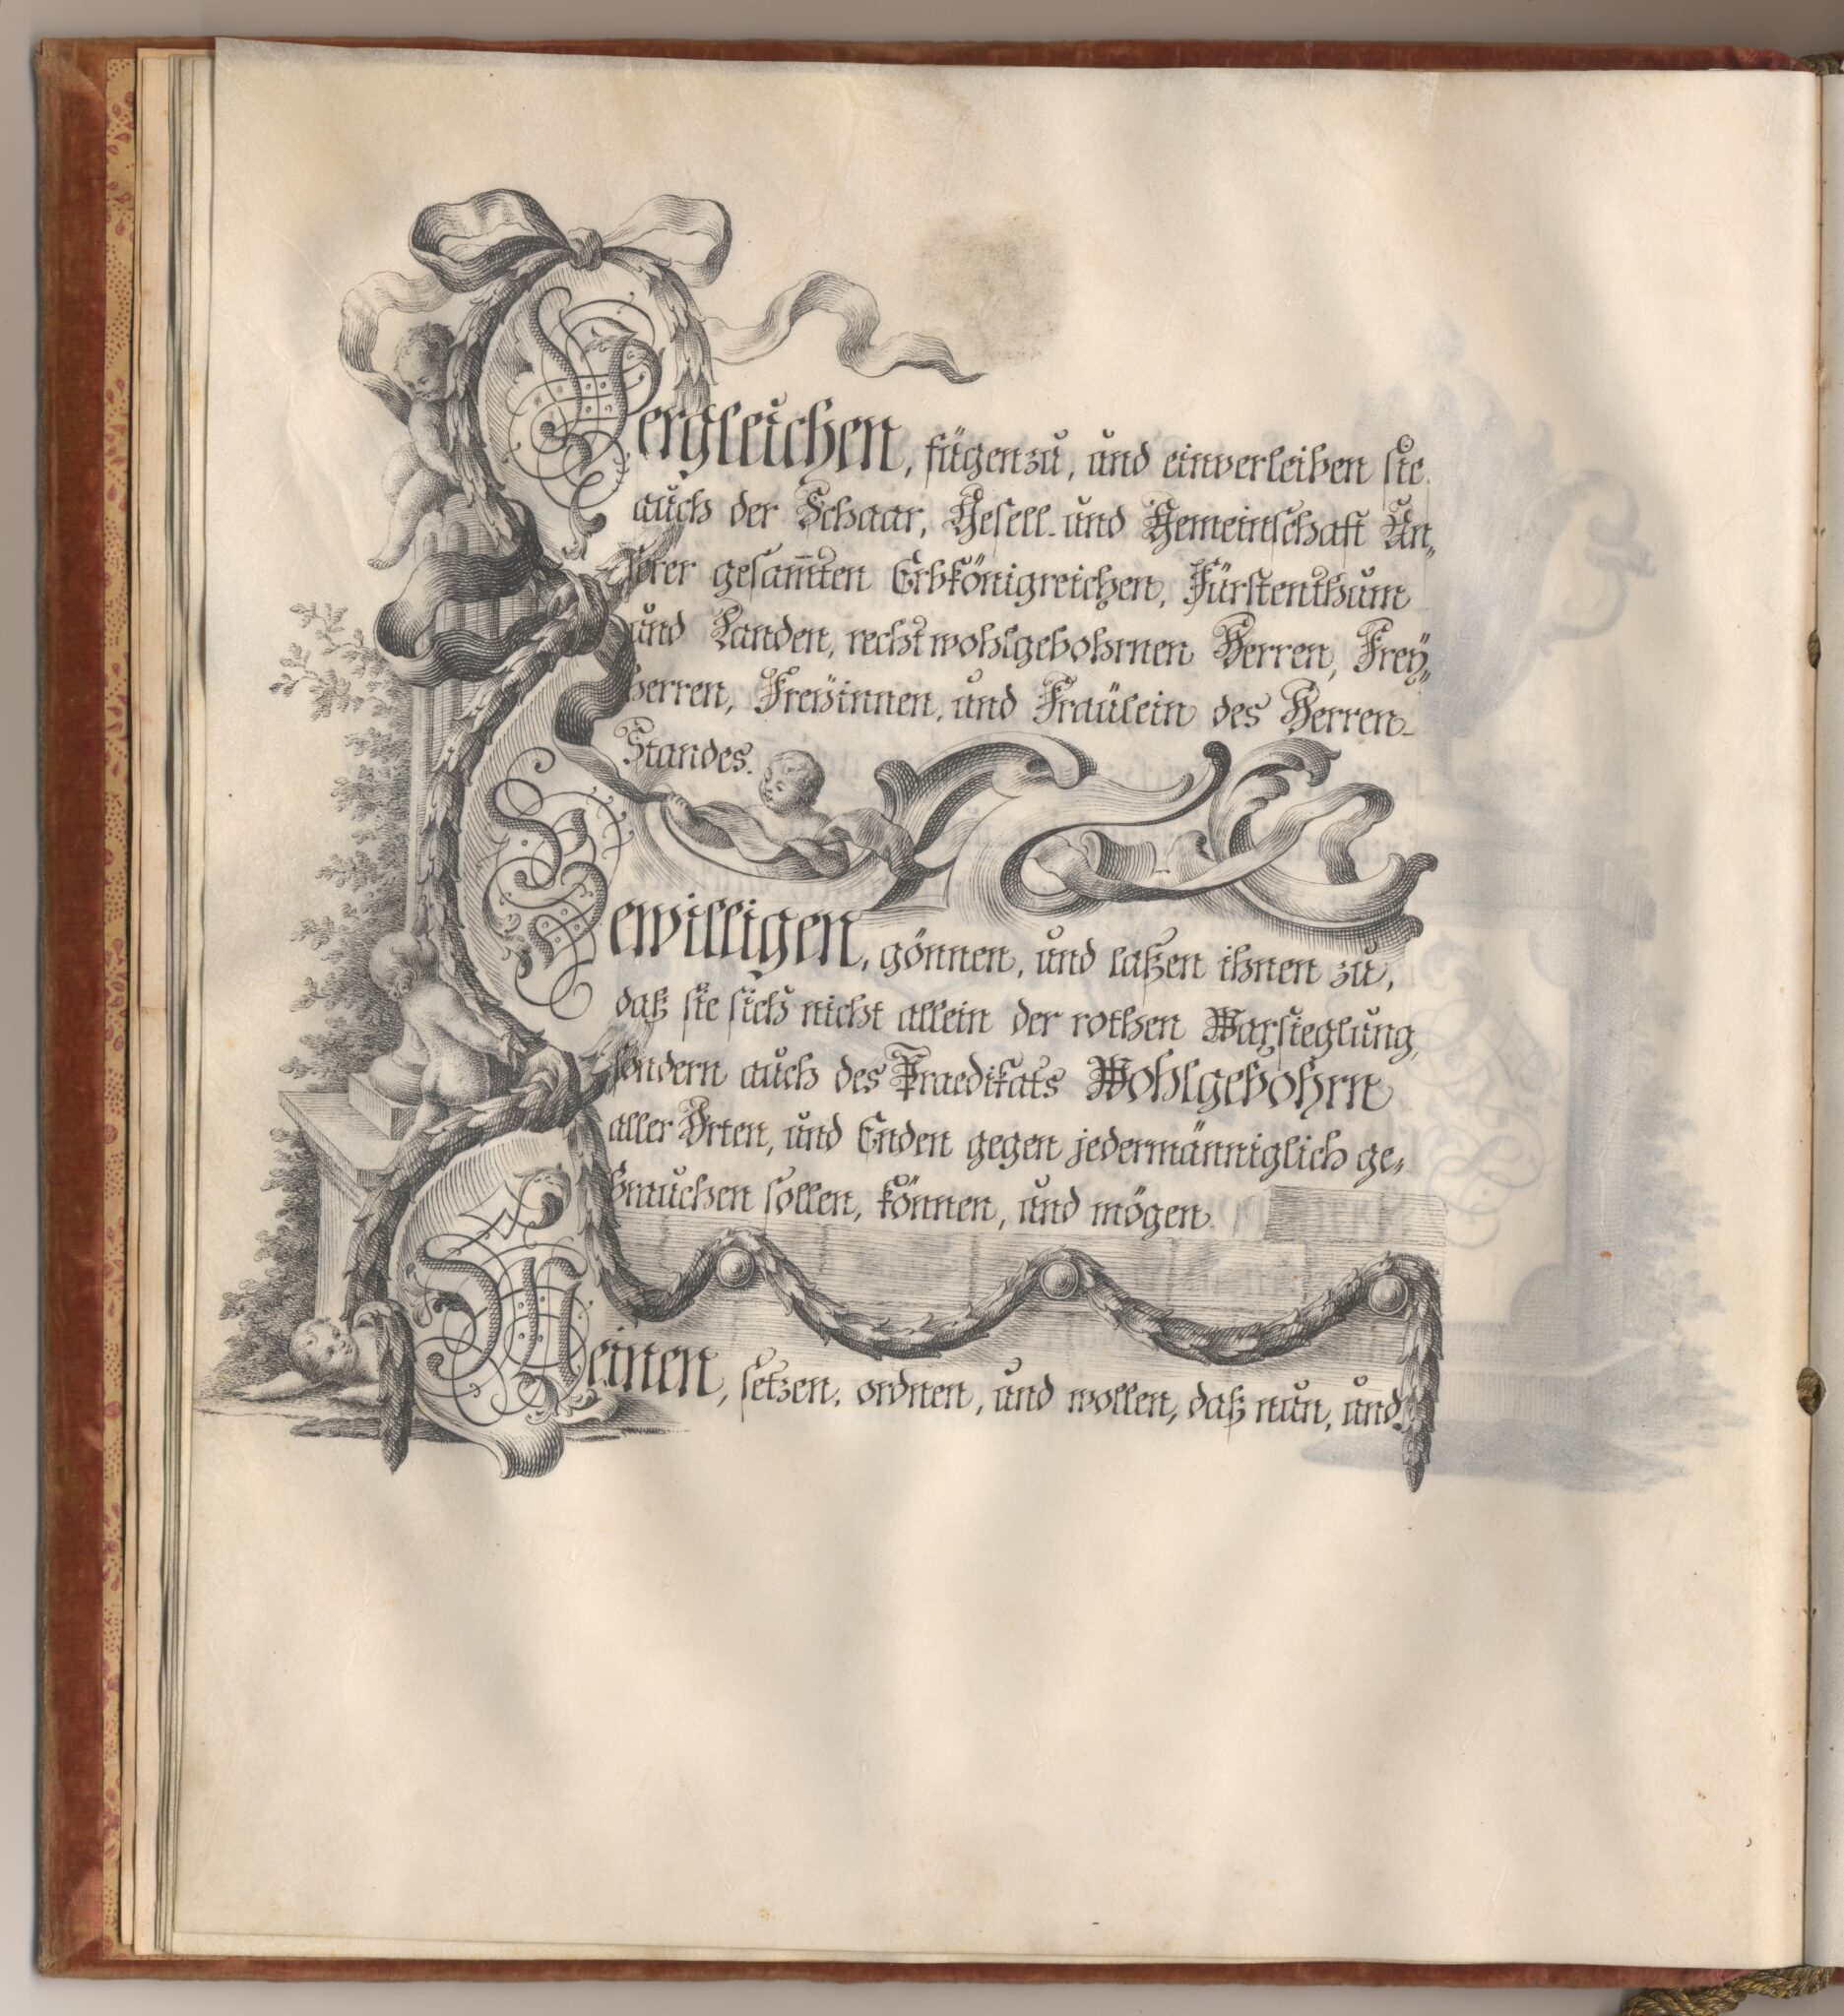 Vergleichen, fügen zu, und einverleiben sie
auch der Schaar, Gesell- und Gemeinschaft Un„
serer gesam̅ten Erbkönigreichen, Fürstenthum
und Landen, recht wohlgebohrnen Herren, Frey„
herren, Freyinnen, und Fraülein des Herren-
Standes.
Bewilligen, gönnen, und laßen ihnen zu,
daß sie sich nicht allein der rothen Waxsieglung,
sondern auch des Praedikats Wohlgebohrn
aller Orten, und Enden gegen jedermänniglich ge„
brauchen sollen, können, und mögen.
Meinen, setzen, ordnen, und wollen, daß nun, und